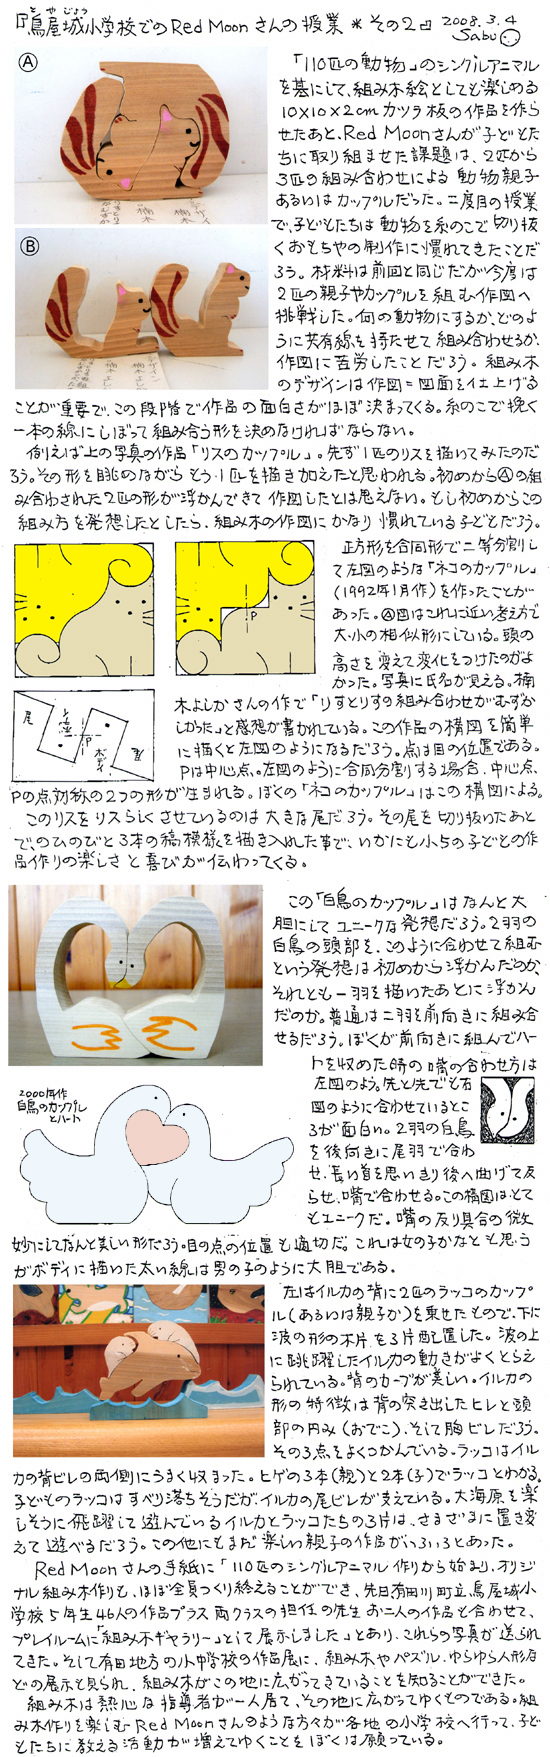 とやじょう
『鳥屋城小学校でのRed Moonさんの授業 * その2』 2008.3.4
Sabu
Ⓐ
「110匹の動物」のシングルアニマル
を基にして、組み木絵としても楽しめる
10×10×2cmカツラ板の作品を作ら
せたあと、Red Moonさんが子どもた
ちに取り組ませた課題は、2匹から
3匹の組み合わせによる動物親子
あるいはカップルだった。二度目の授業
で、子どもたちは動物を糸のこで切り抜
くおもちゃの制作に慣れてきたことだ
ろう。材料は前回と同じだが今度は
2匹の親子やカップルを組む作図へ
挑戦した。何の動物にするか、どのよ
うに共有線を持たせて組み合わせるか、
作図に苦労したことだろう。組み木
のデザインは作図=図面を仕上げる
Ⓑ
ことが重要で、この段階で作品の面白さがほぼ決まってくる。糸のこで挽く
一本の線にしぼって組み合う形を決めなければならない。
例えば上の写真の作品「リスのカップル」。先ず1匹のリスを描いてみたのだ
ろう。その形を眺めながらもう1匹を描き加えたと思われる。初めからⒶの組
み合わされた2匹の形が浮かんできて作図したとは思えない。もし初めからこの
組み方を発想したとしたら、組み木の作図にかなり慣れている子どもだろう。
正方形を合同形で二等分割し
て左図のような「ネコのカップル」
(1992年1月作)を作ったことが
あった。Ⓐ図はこれに近い考え方で
大・小の相似形にしている。頭の
高さを変えて変化をつけたのがよ
かった。写真に氏名が見える。楠
木よしかさんの作で「りすとりすの組み合わせがむずか
しかった」と感想が書かれている。この作品の構図を簡単
に描くと左図のようになるだろう。点は目の位置である。
P
尾
P
ボディ
尾
Pは中心点。左図のように合同分割する場合、中心点、
Pの点対称の2つの形が生まれる。ぼくの「ネコのカップル」はこの構図による。
このリスをリスらしくさせているのは大きな尾だろう。その尾を切り抜いたあと
で、のびのびと3本の縞模様を描き入れた事で、いかにも小5の子どもの作
品作りの楽しさと喜びが伝わってくる。
この「白鳥のカップル」はなんと大
胆にしてユニークな発想だろう。2羽の
白鳥の頭部を、このように合わせて組む
という発想は初めから浮かんだのか、
それとも一羽を描いたあとに浮かん
だのか。普通は二羽を前向きに組み合
せるだろう。ぼくが前向きに組んでハー
トを収めた時の嘴の合わせ方は
左図のよう。先と先でも右
図のように合わせているとこ
ろが面白い。2羽の白鳥
を後向きに尾羽で合わ
せ、長い首を思いきり後へ曲げて反
らせ、嘴で合わせる。この構図はとて
もユニークだ。嘴の反り具合の微
2000年作
白鳥のカップル
とハート
妙にしてなんと美しい形だろう。目の点の位置も適切だ。これは女の子かなとも思う
がボディに描いた太い線は男の子のように大胆である。
左はイルカの背に2匹のラッコのカップ
ル(あるいは親子か)を乗せたもので、下に
波の形の木片を3片配置した。波の上
に跳躍したイルカの動きがよくとらえ
られている。背のカーブが美しい。イルカの
形の特徴は背の突き出したヒレと頭
部の円み(おでこ)、そして胸ビレだろう。
その3点をよくつかんでいる。ラッコはイル
カの背ビレの両側にうまく収まった。ヒゲの3本(親)と2本(子)でラッコとわかる。
子どものラッコはすべり落ちそうだが、イルカの尾ビレが支えている。大海原を楽
しそうに飛躍して遊んでいるイルカとラッコたちの3片は、さまざまに置き変
えて遊べるだろう。この他にもまだ楽しい親子の作品がいろいろとあった。
Red Moonさんの手紙に「110匹のシングルアニマル作りから始まり、オリジ
ナル組み木作りも、ほぼ全員つくり終えることができ、先日有田川町立鳥屋城小
学校5年生46人の作品プラス両クラスの担任の先生お二人の作品も合わせて、
プレイルームに「組み木ギャラリー」として展示しました」とあり、これらの写真が送られ
てきた。そして有田地方の小中学校の作品展に、組み木やパズル、ゆらゆら人形な
どの展示も見られ、組み木がこの地に広がってきていることを知ることができた。
組み木は熱心な指導者が一人居て、その地に広がってゆくものである。組
み木作りを楽しむRed Moonさんのような方々が各地の小学校へ行って、子ど
もたちに教える活動が増えてゆくことをぼくは願っている。